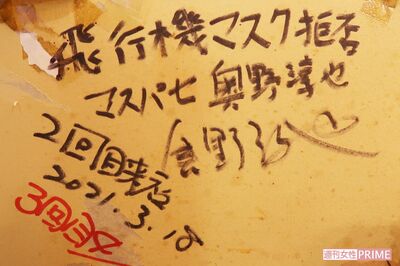 飛行機マスク拒否
マスパセ 奥野淳也
2回目来店
2021.3.18
週刊女性PRIME